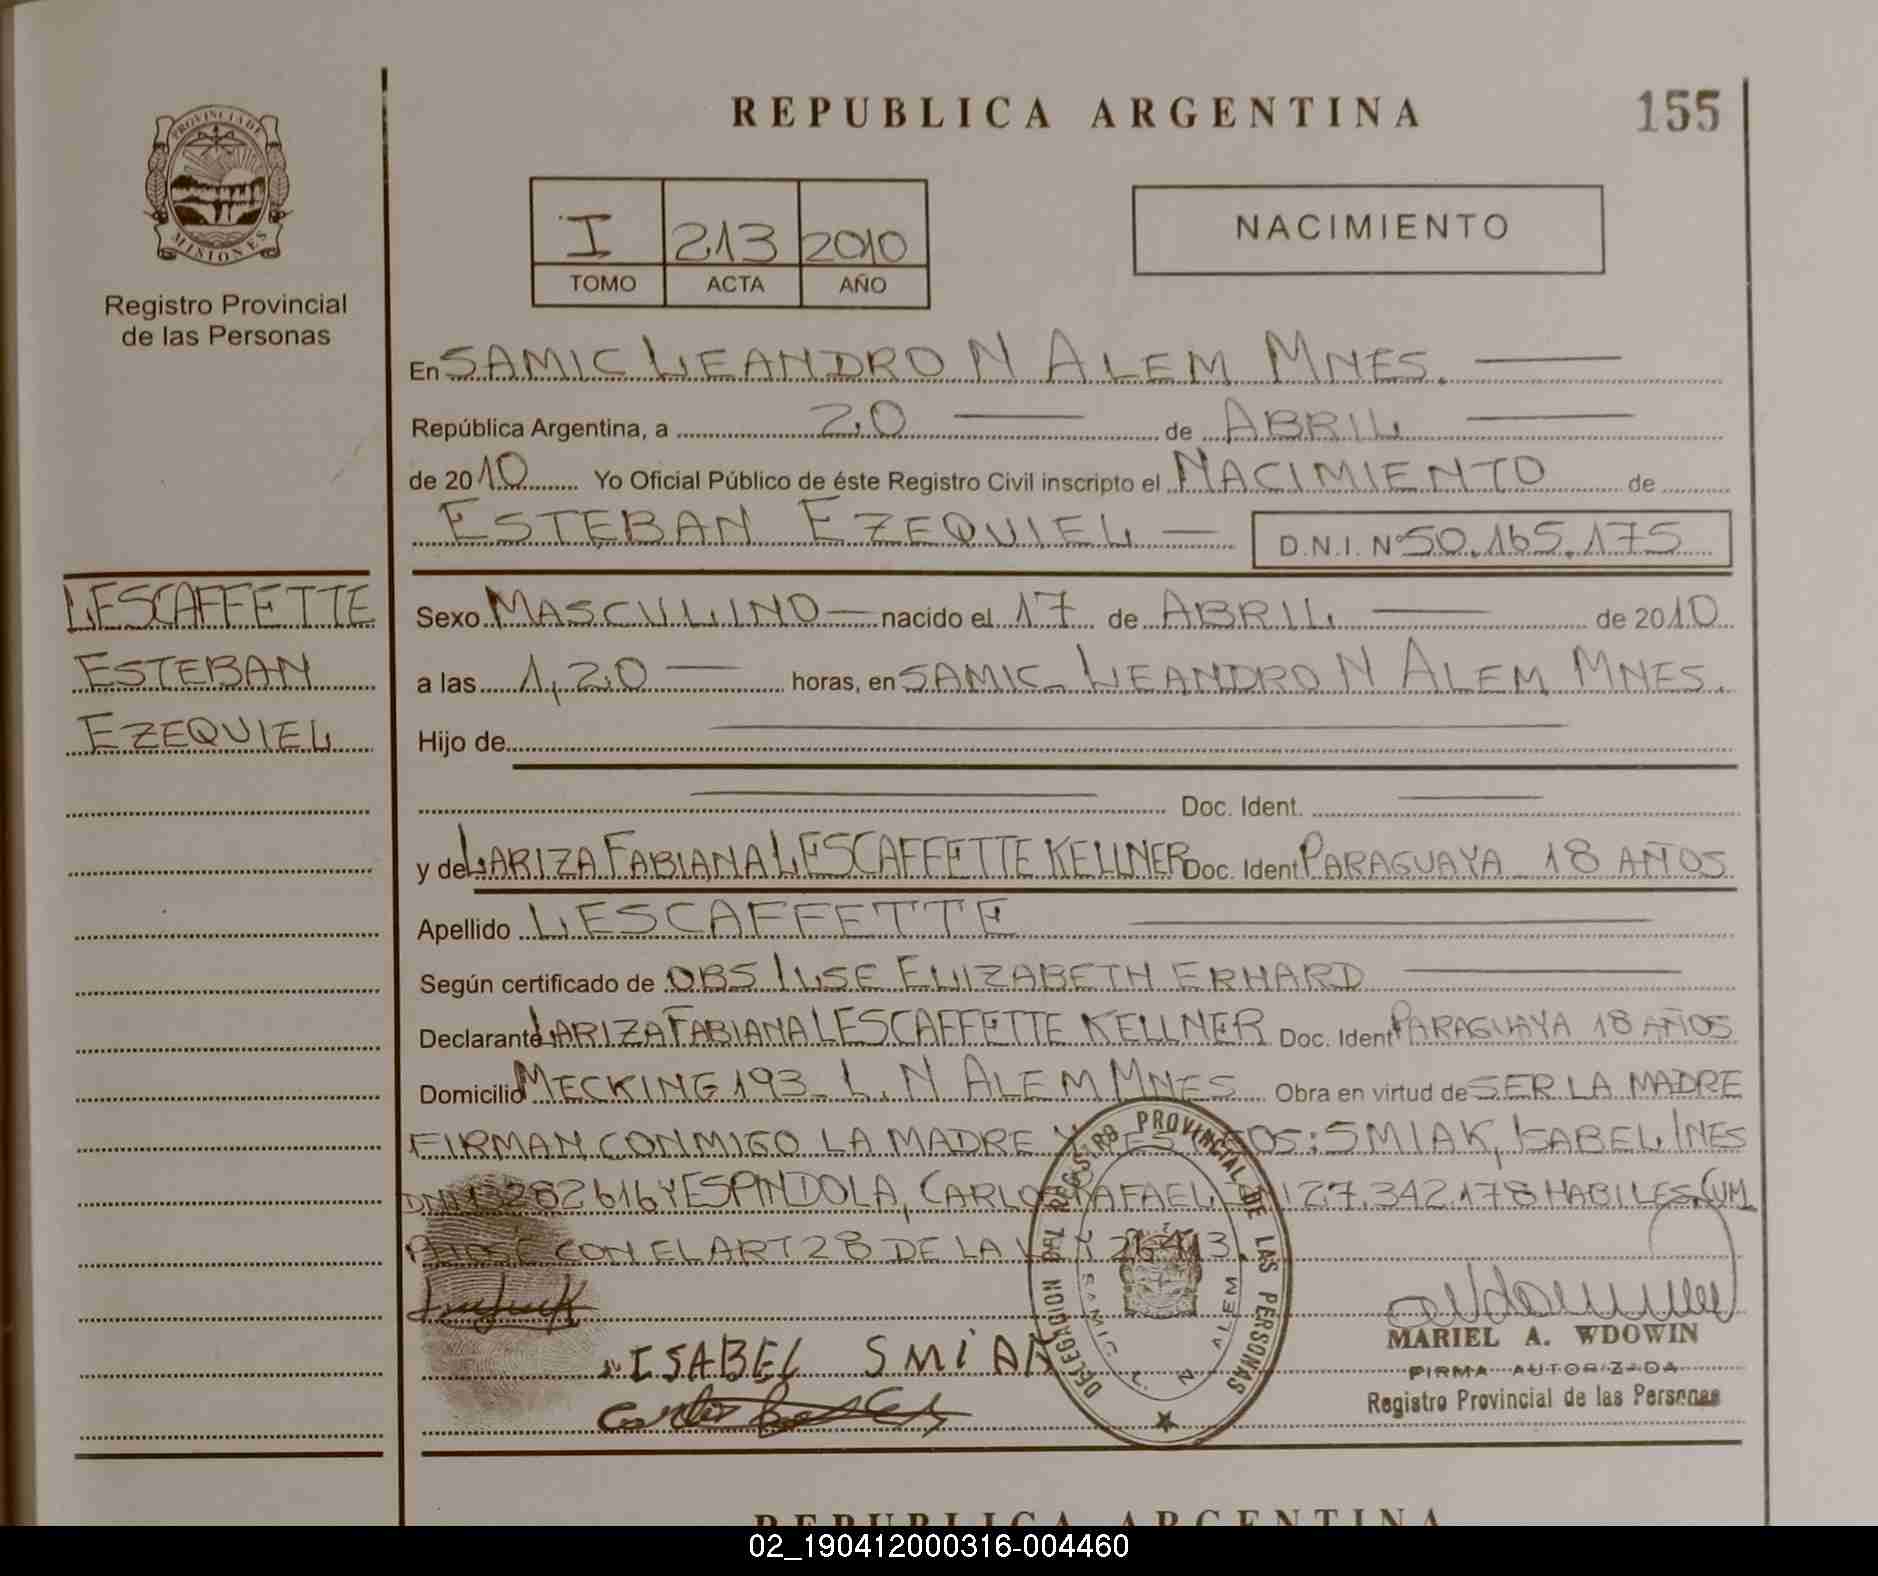 REPUBLICA ARGENTINA
155
PROVINCIA DE
MISIONES
Registro Provincial
de las Personas
I 213 2010
TOMO ACTA AÑO
NACIMIENTO
En SAMIC LEANDRO N ALEM MNES.
República Argentina, a 20 de ABRIL
de 2010 Yo Oficial Público de éste Registro Civil inscripto el NACIMIENTO de
ESTEBAN EZEQUIEL D.N.I. Nº 50.165.175
LESCAFFETTE
ESTEBAN
EZEQUIEL
Sexo MASCULINO nacido el 17 de ABRIL de 2010
a las 1,20 horas, en SAMIC LEANDRO N ALEM MNES.
Hijo de
Doc. Ident.
y de LARIZA FABIANA LESCAFFETTE KELLNER Doc. Ident PARAGUAYA 18 AÑOS
Apellido LESCAFFETTE
Según certificado de OBS ILSE ELIZABETH ERHARD
Declarante LARIZA FABIANA LESCAFFETTE KELLNER Doc. Ident PARAGUAYA 18 AÑOS
Domicilio MECKING 193 L.N ALEM MNES Obra en virtud de SER LA MADRE
FIRMAN CONMIGO LA MADRE Y : SMIAK, ISABEL INES
Y ESPINDOLA, CARLOS RAFAEL 27.342.178 HABILES, CUM
CON EL ART 28 DE LA 26.413.
ISABEL SMIAK
DELEGACION DEL REGISTRO PROVINCIAL DE LAS PERSONAS
SAMIC L. N. ALEM
MARIEL A. WDOWIN
FIRMA AUTORIZADA
Registro Provincial de las Personas
REPUBLICA ARGENTINA
02_190412000316-004460